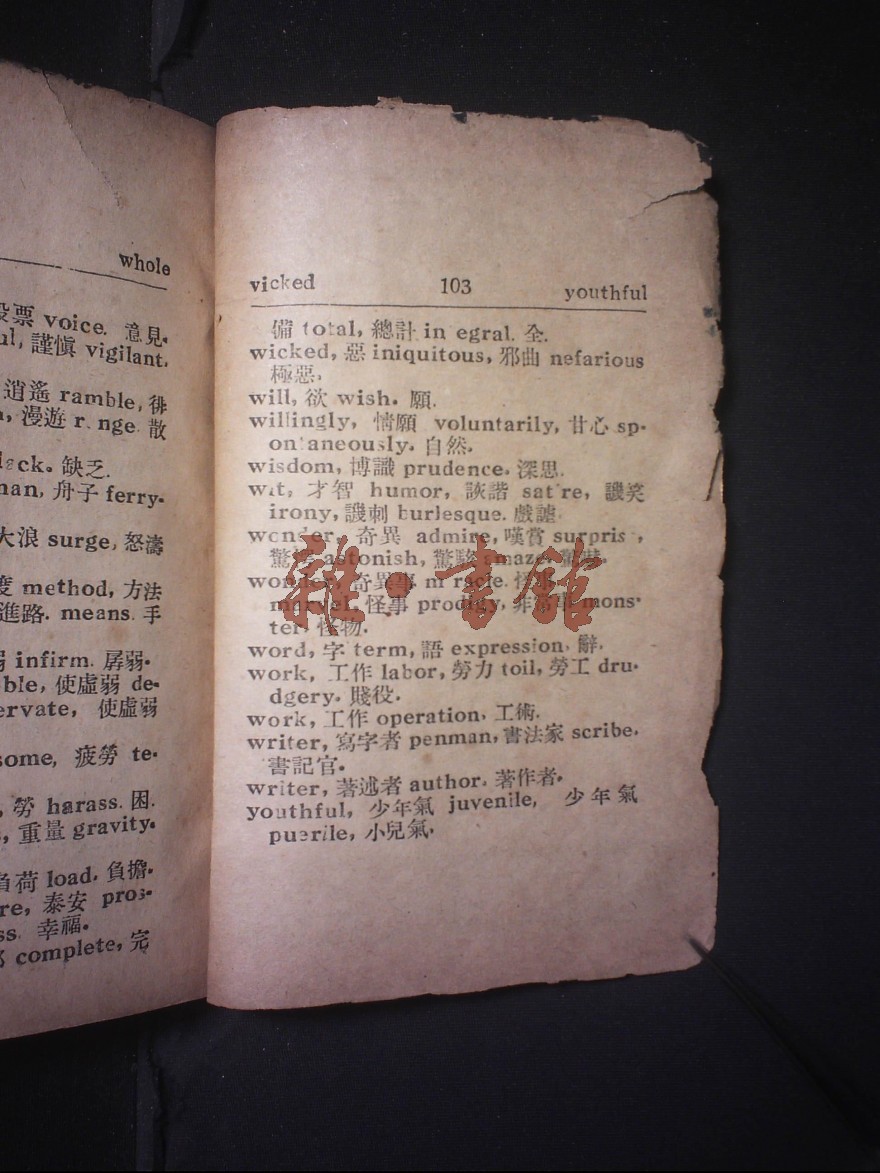 whole
投票 voice. 意見.
ul, 謹愼 vigilant,
逍遙 ramble, 徘
漫遊 r nge. 散
lack. 缺乏.
man, 舟子 ferry-
大浪 surge, 怒濤
度 method, 方法
進路. means. 手
弱 infirm. 孱弱.
ble, 使虛弱 de-
ervate, 使虛弱
some, 疲勞 te-
勞 harass. 困.
重量 gravity.
負荷 load. 負擔.
re, 泰安 pros-
ss. 幸福.
complete, 完
vicked 103 youthful
備 total, 總計 in egral. 全.
wicked, 惡 iniquitous, 邪曲 nefarious
極惡,
will, 欲 wish. 願.
willingly, 情願 voluntarily, 甘心 sp-
ontaneously. 自然.
wisdom, 博識 prudence. 深思.
wit, 才智 humor, 詼諧 sat re, 譏笑
irony, 譏刺 burlesque. 戲謔.
wonder, 奇異 admire, 嘆賞 surpris ,
astonish, 驚駭 amaze,
wonder, 奇異事 m racle. 怪事
marvel, 怪事 prodigy, 非常事 mons-
ter, 怪物.
雜·書館
word, 字 term, 語 expression. 辭.
work, 工作 labor, 勞力 toil, 勞工 dru-
dgery. 賤役.
work, 工作 operation. 工術.
writer, 寫字者 penman, 書法家 scribe.
書記官.
writer, 著述者 author. 著作者.
youthful, 少年氣 juvenile, 少年氣
puerile, 小兒氣.